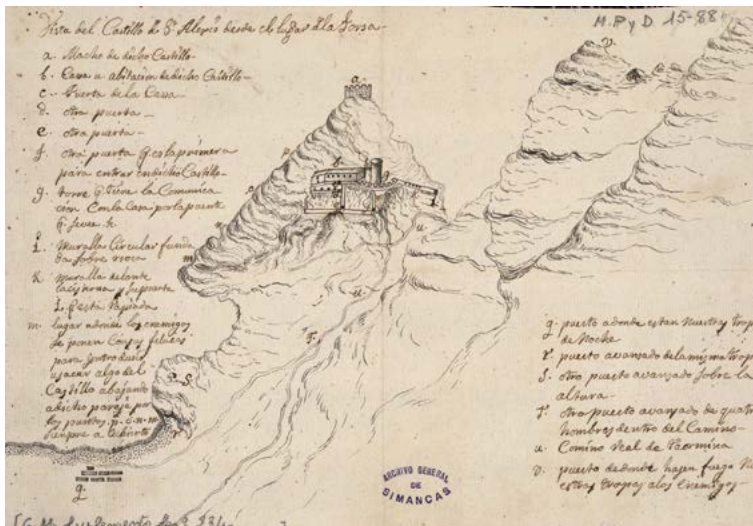 Vista del Castillo de Sn Alexo desde el lugar dla Forsa
M. P y D. 15-88
a. Macho de dicho Castillo
b. Casa u abitacion de dicho Castillo
c. Puerta de la Casa
d. otra puerta
e. otra puerta
f. otra puerta q. es la primera
para entrar en dicho Castillo
g. torre q. tiene la Comunica
cion Con la Casa por la puente
q. sirve
i. muralla Circular funda
da sobre roca
k. muralla delante
la cisterna y su puerta
q. está tapiada
m. lugar adonde los enemigos
se ponen
para introducir
u sacar algo del
Castillo abajando
a dicho paraje por
los puestos p. o. n. m
siempre a Cubierto
q. puesto adonde estan nuestras trop
de Noche
r. puesto avansado de la misma trop
s. otro puesto avansado sobre la
altura
t. otro puesto avansado de quatr
hombres dentro del Camino
u. Camino Real de Taormina
v. puesto de donde hasen fuego
estras tropas a los Enemigos
a
v
p
o
n
m
u
u
s.
r
q.
ARCHIVO GENERAL
DE
SIMANCAS
G. M. Suplemento